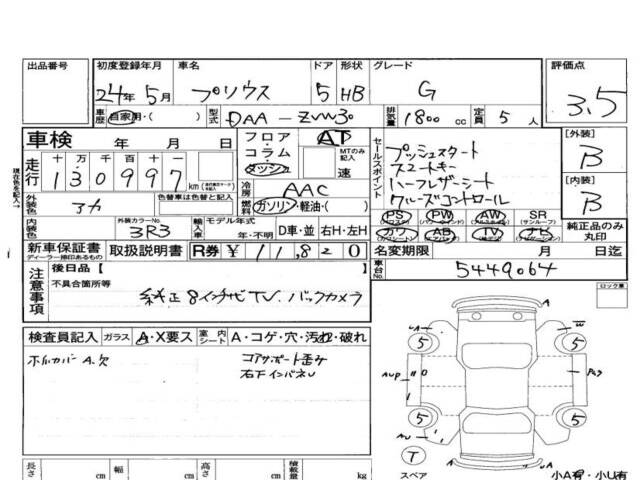 出品番号 初度登録年月 車名 ドア 形状 グレード 評価点
24年 5月 プリウス 5 HB G 3.5
車歴 自家用・( ) 型式 DAA-ZVW30 排気量 1800 cc 定員 5 人
車検 年 月 日 フロア・コラム・ AT セールスポイント プッシュスタート [外装]
走行 十 万 千 百 十 一 MTのみ記入 スマートキー B
130997 km 速 ハーフレザーシート [内装]
現在色を記入→ 冷房 AAC クルーズコントロール B
外装色 アカ 色替車は色替と記入 燃料 ガソリン・軽油・( ) PS PW AW SR
内装色 外装カラーNo. 3R3 輸入車 モデル年式 年・不明 D車・並 右H・左H カワ AB TV ナビ 純正品のみ丸印
新車保証書 取扱説明書 R券 ¥11,820 名変期限 月 日迄
ディーラー捺印あるもの 車台No. 5449064
注意事項 後日品[ ] ロック車
不具合箇所等
純正8インチナビTV. バックカメラ
検査員記入 ガラス A・X要ス 室内シート A・コゲ・穴・汚れ・破れ
ホイルカバーA.欠 コアサポート歪み
右下インパネU
UA W
5 5
AUP
5 5
AU
T
スペア 小A有・小U有
長さ cm 幅 cm 高さ cm 積載量 kg